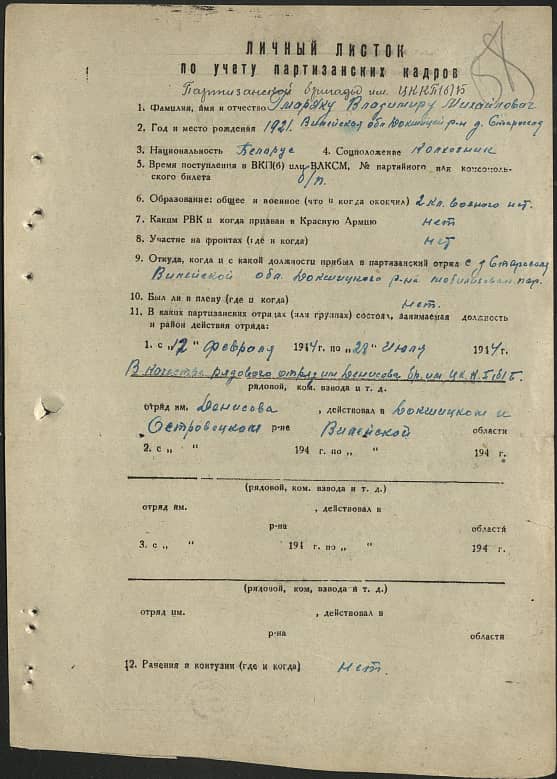 58
ЛИЧНЫЙ ЛИСТОК
по учету партизанских кадров
Партизанской бригады им. ЦККП(б)Б
1. Фамилия, имя и отчество Владимиру Михайлович
2. Год и место рождения 1921. Вилейская обл. Докшицкий р-н д.
3. Национальность Беларус 4. Соцположение Колхозник
5. Время поступления в ВКП(б) или ВЛКСМ, № партийного или комсомоль-
ского билета б/п.
6. Образование: общее и военное (что и когда окончил) 2 кл. военого нет.
7. Каким РВК и когда призван в Красную Армию нет
8. Участие на фронтах (где и когда) нет
9. Откуда, когда и с какой должности прибыл в партизанский отряд с д.
Вилейской обл. Докшицкого р-на мобилизован пар.
10. Был ли в плену (где и когда) нет.
11. В каких партизанских отрядах (или группах) состоял, занимаемая должность
и район действия отряда:
1. с „12" февраля 1944 г. по „28" июля 1944 г.
В качестве рядового отряд им. Денисова бр. им. ЦК К.П.(б)Б.
рядовой, ком. взвода и т. д.
отряд им. Денисова , действовал в Докшицком и
Островецком р-не Вилейской области
2. с „ " 194 г. по „ " 194 г.
(рядовой, ком. взвода и т. д.)
отряд им. , действовал в
р-на области
3. с „ " 194 г. по „ " 194 г.
(рядовой, ком, взвода и т. д.)
отряд им. , действовал в
р-на области
12. Ранения и контузии (где и когда) нет.